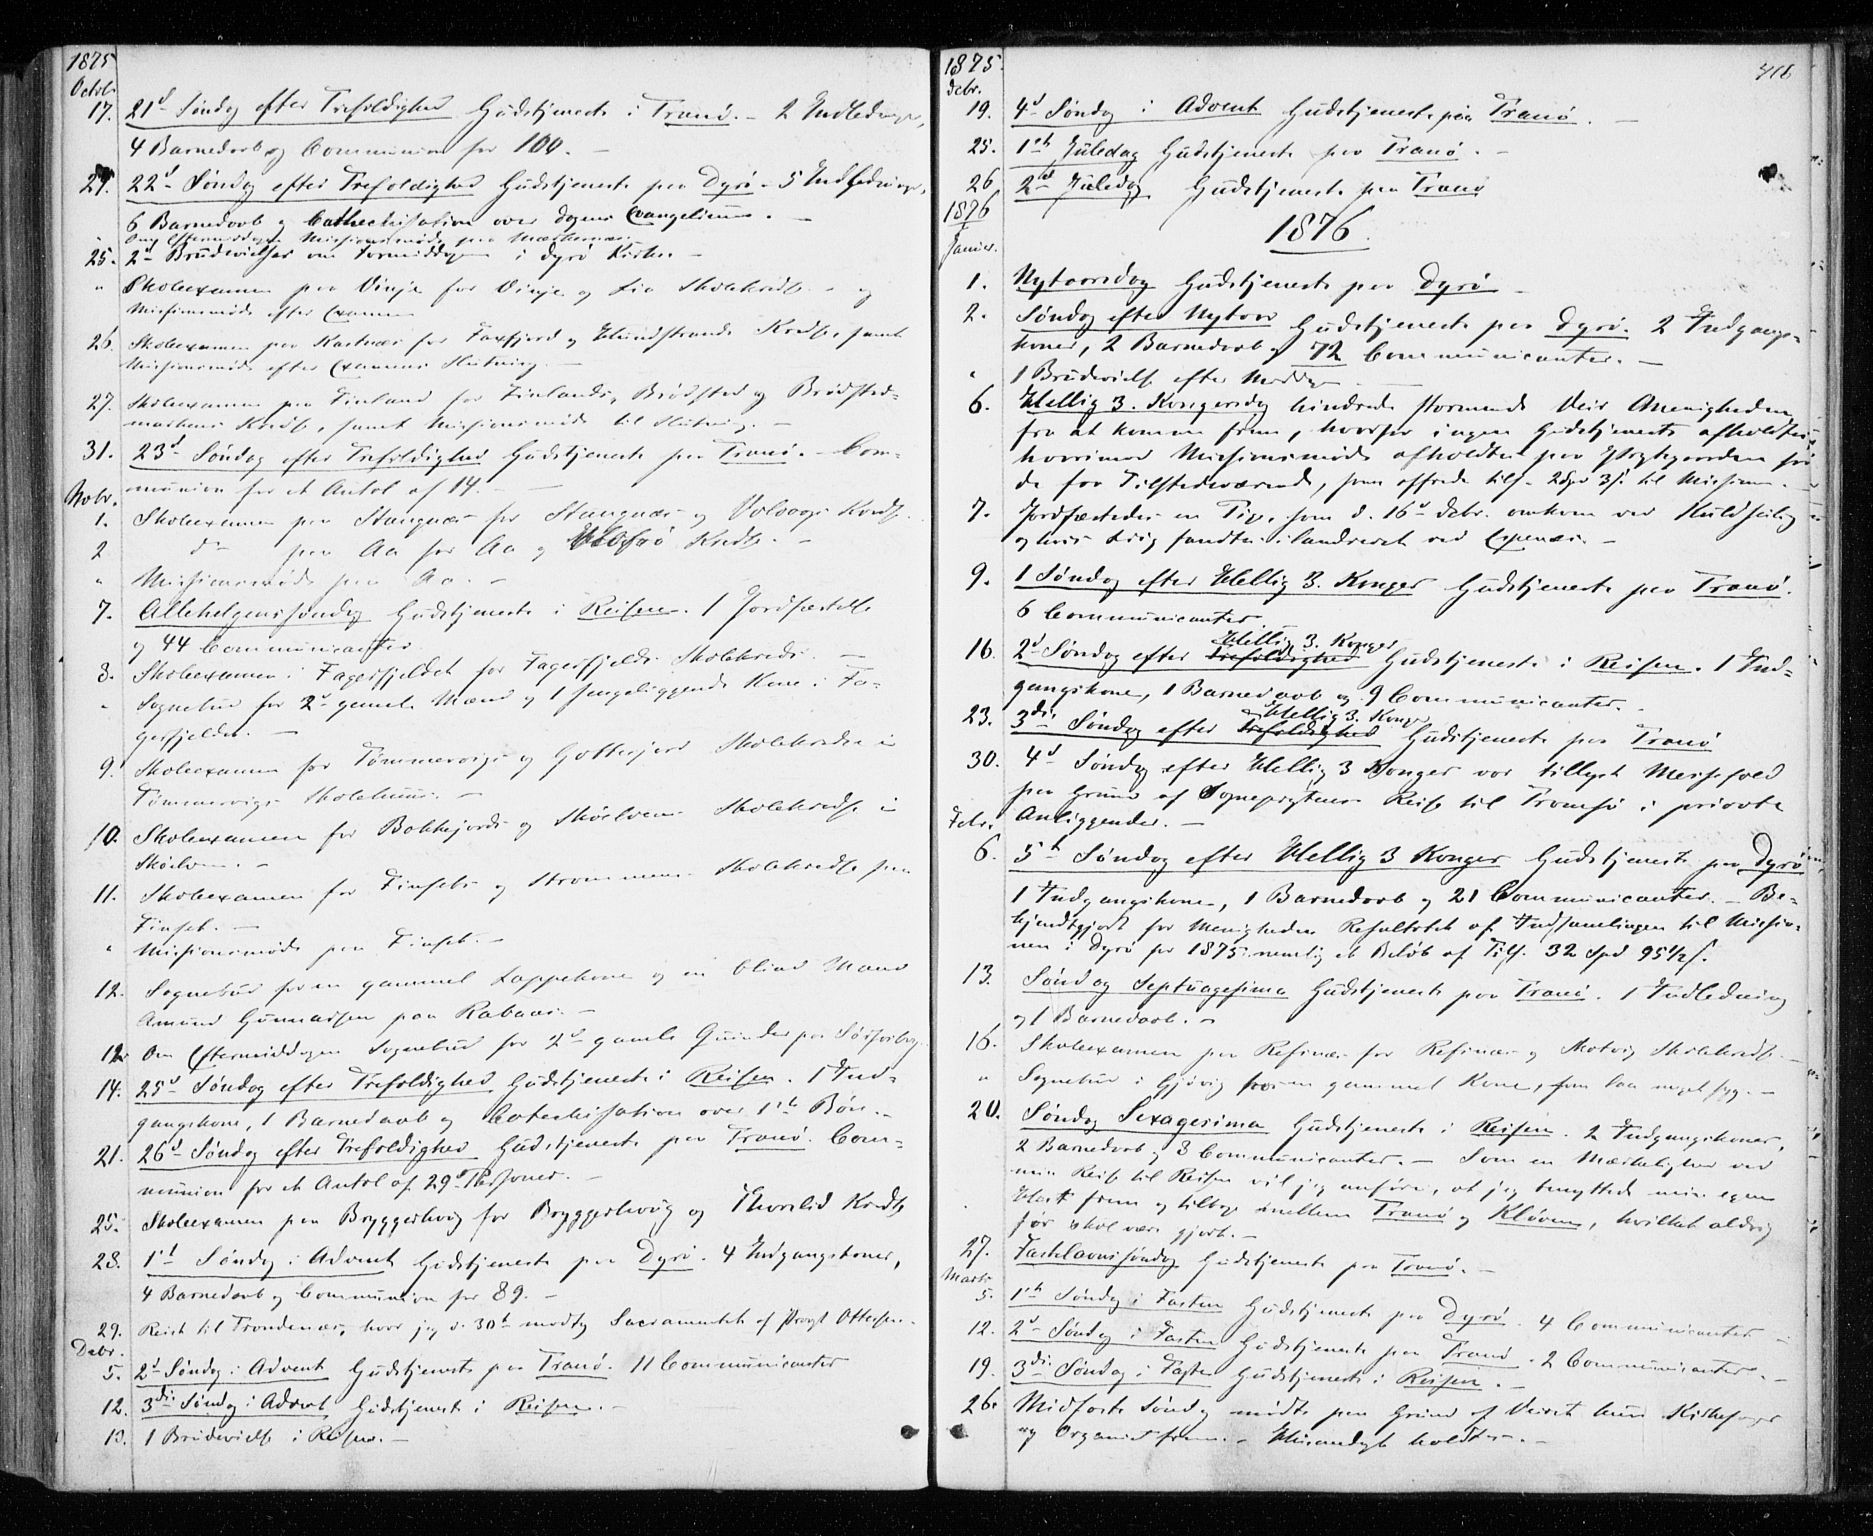 1875
Octob.
17. 21d Søndag efter Trefoldighed Gudstjeneste i Tranö. 2 Indledninger,
4 Barnedaab og Communion for 100. –
24. 22d Søndag efter Trefoldighed Gudstjeneste paa Dyrö – 5 Indledninger,
6 Barnedaab og Cathechisation over Dagens Evangelium. –
" Om Eftermiddagen Missionsmöde paa
25. 2d Brudevielser om Formiddagen i Dyrö Kirke –
" Skoleexamen paa Vinje for Vinje og Lia Skolekreds – og
Missionsmöde efter Examen
26. Skoleexamen paa Kastnæs for Faxfjord og Kredse, samt
Missionsmöde efter Examens Slutning. –
27. Skoleexamen paa Finland for Finlands, Brödsted og Brödsted-
marken Kredse, samt Missionsmöde til Slutning. –
31. 23d Søndag efter Trefoldighed Gudstjeneste paa Tranö. Com-
munion for et Antal af 14. –
Nobr.
1. Skoleexamen paa Stangnæs for Stangnæs og Kredse.
2 do paa Aa for Aa og Kreds. –
" Missionsmöde paa Aa. –
7. Allehelgenssöndag Gudstjeneste i Reisen. 1 Jordfæstelse
og 44 Communicanter
8. Skoleexamen i Fagerfjeldet for Fagerfjelds Skolekreds. –
" Sognebud for 2de gamle Mænd og 1 sengeliggende Kone i Fa-
gerfjeldet. –
9. Skoleexamen for Tömmervigs og Gottesjord Skolekredse i
Tömmervigs Skolehuus. –
10. Skoleexamen for Bakkejords og Skøelven Skolekredse i
Skøelven. –
11. Skoleexamen for Finsæts og Strommen Skolekredse paa
Finsæt. –
" Missionsmöde paa Finsæt. –
12. Sognebud for en gammel Lappekone og en blind Mand
Amund Gunnarsen paa Rabaas. –
12. Om Eftermiddagen Sognebud for 2de gamle Qvinder paa
14. 25d Søndag efter Trefoldighed Gudstjeneste i Reisen. 1 Ind-
gangskone, 1 Barnedaab og Catechisation over 1ste Bön. –
21. 26d Søndag efter Trefoldighed Gudstjeneste paa Tranö. Com-
munion for et Antal af 29 Personer. –
25. Skoleexamen paa Bryggerhvig for Bryggerhvig og Kredse
28. 1ste Søndag i Advent Gudstjeneste paa Dyrö. 4 Indgangskoner,
4 Barnedaab og Communion for 89. –
29. Reiste til Trondenæs, hvor jeg d. 30te modtog Sacramentet af Provst Ottesen.
Debr.
5. 2d Søndag i Advent Gudstjeneste paa Tranö. 11 Communicanter
12. 3die Søndag i Advent Gudstjeneste i Reisen. –
13. 1 Brudevielse i Reisen. –
1875. 416
Debr.
19. 4d Søndag i Advent Gudstjeneste paa Tranö. –
25. 1ste Juledag Gudstjeneste paa Tranö. –
26. 2d Juledag Gudstjeneste paa Tranö
1876
1876.
Januar.
1. Nytaarsdag Gudstjeneste paa Dyrö –
2. Søndag efter Nytaar Gudstjeneste paa Dyrö. 2 Indgangs-
koner, 2 Barnedaab og 72 Communicanter. –
" 1 Brudevielse efter Middag –
6. Hellig 3. Kongersdag hindrede stormende Veir Menigheden
fra at komme frem, hvorfor ingen Gudstjeneste afholdtes,
hvorimod Missionsmöde afholdtes paa Prestegaarden for
de faa Tilstedeværende, som offrede tils. 2 Spd 3 s. til Missionen. –
7. Jordfæstedes en Pige, som d. 16d Debr. omkom ved
og hvis Liig fandtes ved –
9. 1 Søndag efter Hellig 3. Konger Gudstjeneste paa Tranö.
6 Communicanter
16. 2d Søndag efter Hellig 3. Konger Trefoldighed Gudstjeneste i Reisen. 1 Ind-
gangskone, 1 Barnedaab og 9 Communicanter. –
23. 3die Søndag efter Hellig 3. Konger Trefoldighed Gudstjeneste paa Tranö
30. 4d Søndag efter Hellig 3 Konger var tillyst Messefald
paa Grund af Sognepræstens Reise til Tromsö i private
Anliggender. –
Febr.
6. 5te Søndag efter Hellig 3 Konger Gudstjeneste paa Dyrö
1 Indgangskone, 1 Barnedaab og 21 Communicanter. – Be-
kjendtgjort for Menigheden Resultatet af Indsamlingen til Missio-
nen i Dyrö for 1875 nemlig et Beløb af Tils. 32 Spd 95 1/2 s.
13. Søndag Septuagesima Gudstjeneste paa Tranö. 1 Indledning
og 1 Barnedaab. –
16. Skoleexamen paa Refsnæs for Refsnæs og Skatvig Skolekredse. –
" Sognebud i Gjövig for en gammel Kone, som laa meget syg. –
20. Søndag Sexagesima Gudstjeneste i Reisen. 2 Indgangskoner,
2 Barnedaab og 3 Communicanter. – Som en Mærkelighed ved
min Reise til Reisen vil jeg anföre, at jeg benyttede min egen
Hest frem og tilbage imellem Tranö og Klöven, hvilket aldrig
för skal være gjort. –
27. Fastelavnssöndag Gudstjeneste paa Tranö. –
Marts
5. 1ste Søndag i Fasten Gudstjeneste paa Dyrö. 4 Communicanter
12. 2d Søndag i Fasten Gudstjeneste paa Tranö. 2 Communicanter. –
19. 3die Søndag i Fasten Gudstjeneste i Reisen. –
26. Midfaste Søndag mödte paa Grund af Veiret kun Kirkesanger
og Organist frem. – holdtes. –